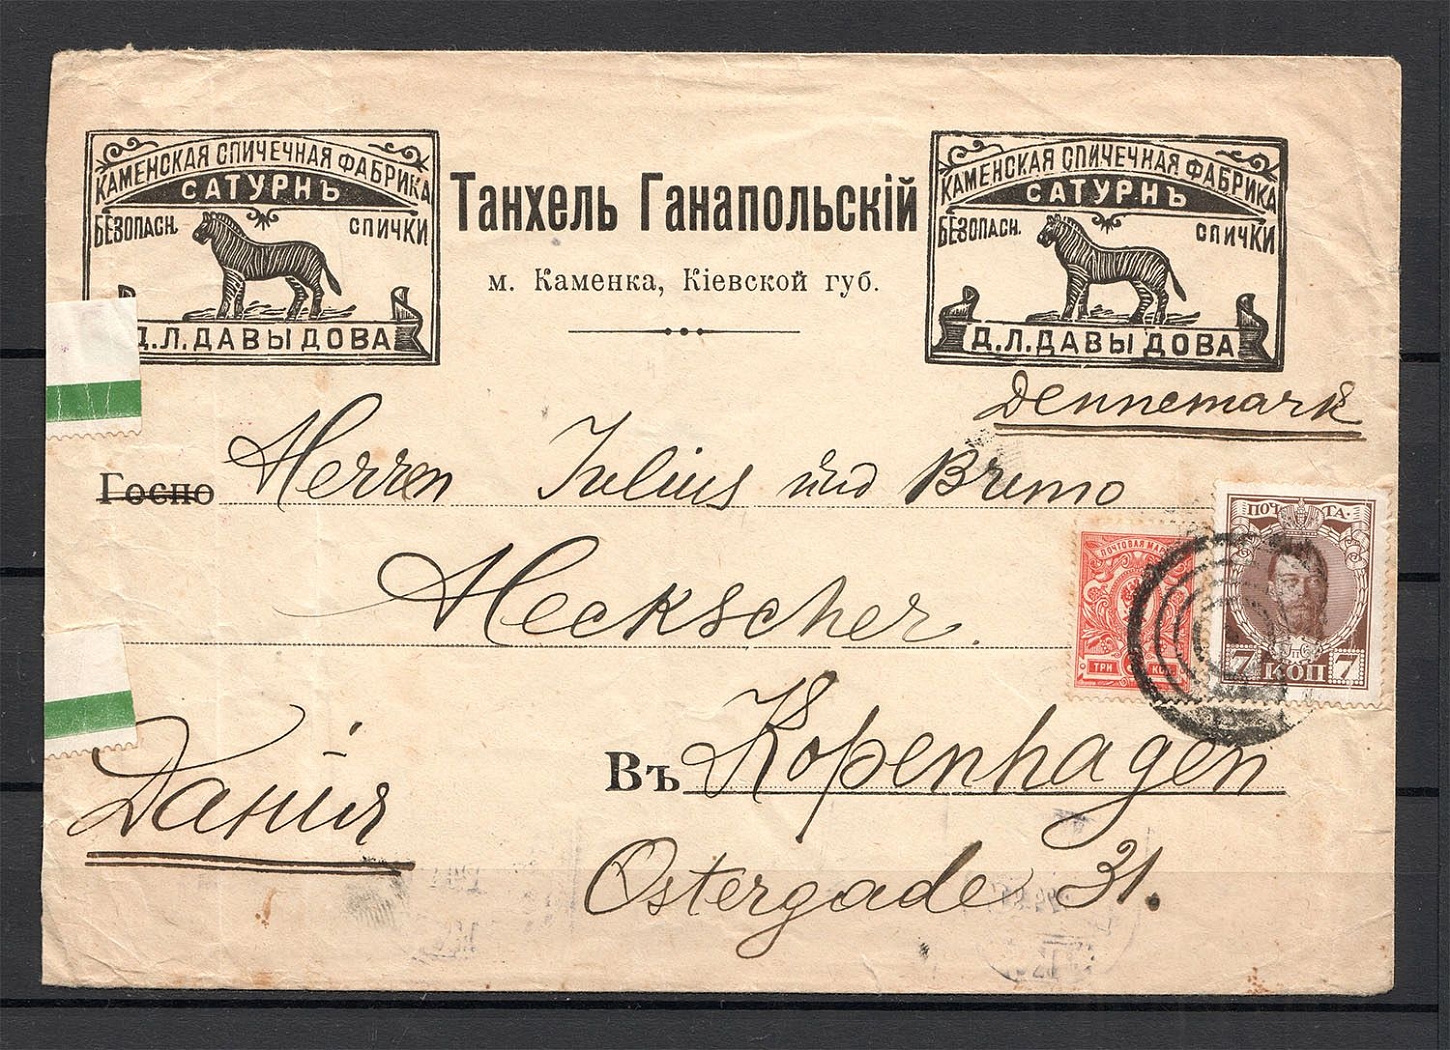 КАМЕНСКАЯ СПИЧЕЧНАЯ ФАБРИКА
САТУРНЪ
БЕЗОПАСН. СПИЧКИ
Д.Л.ДАВЫДОВА
Танхель Ганапольскій
м. Каменка, Кіевской губ.
КАМЕНСКАЯ СПИЧЕЧНАЯ ФАБРИКА
САТУРНЪ
БЕЗОПАСН. СПИЧКИ
Д.Л.ДАВЫДОВА
Dennemark
Госпо Herren Julius und Bruno
Heckscher.
ПОЧТОВАЯ МАР
ТРИ КОП
ПОЧТА.
7 КОП 7
Въ Kopenhagen
Данія
Ostergade 31.